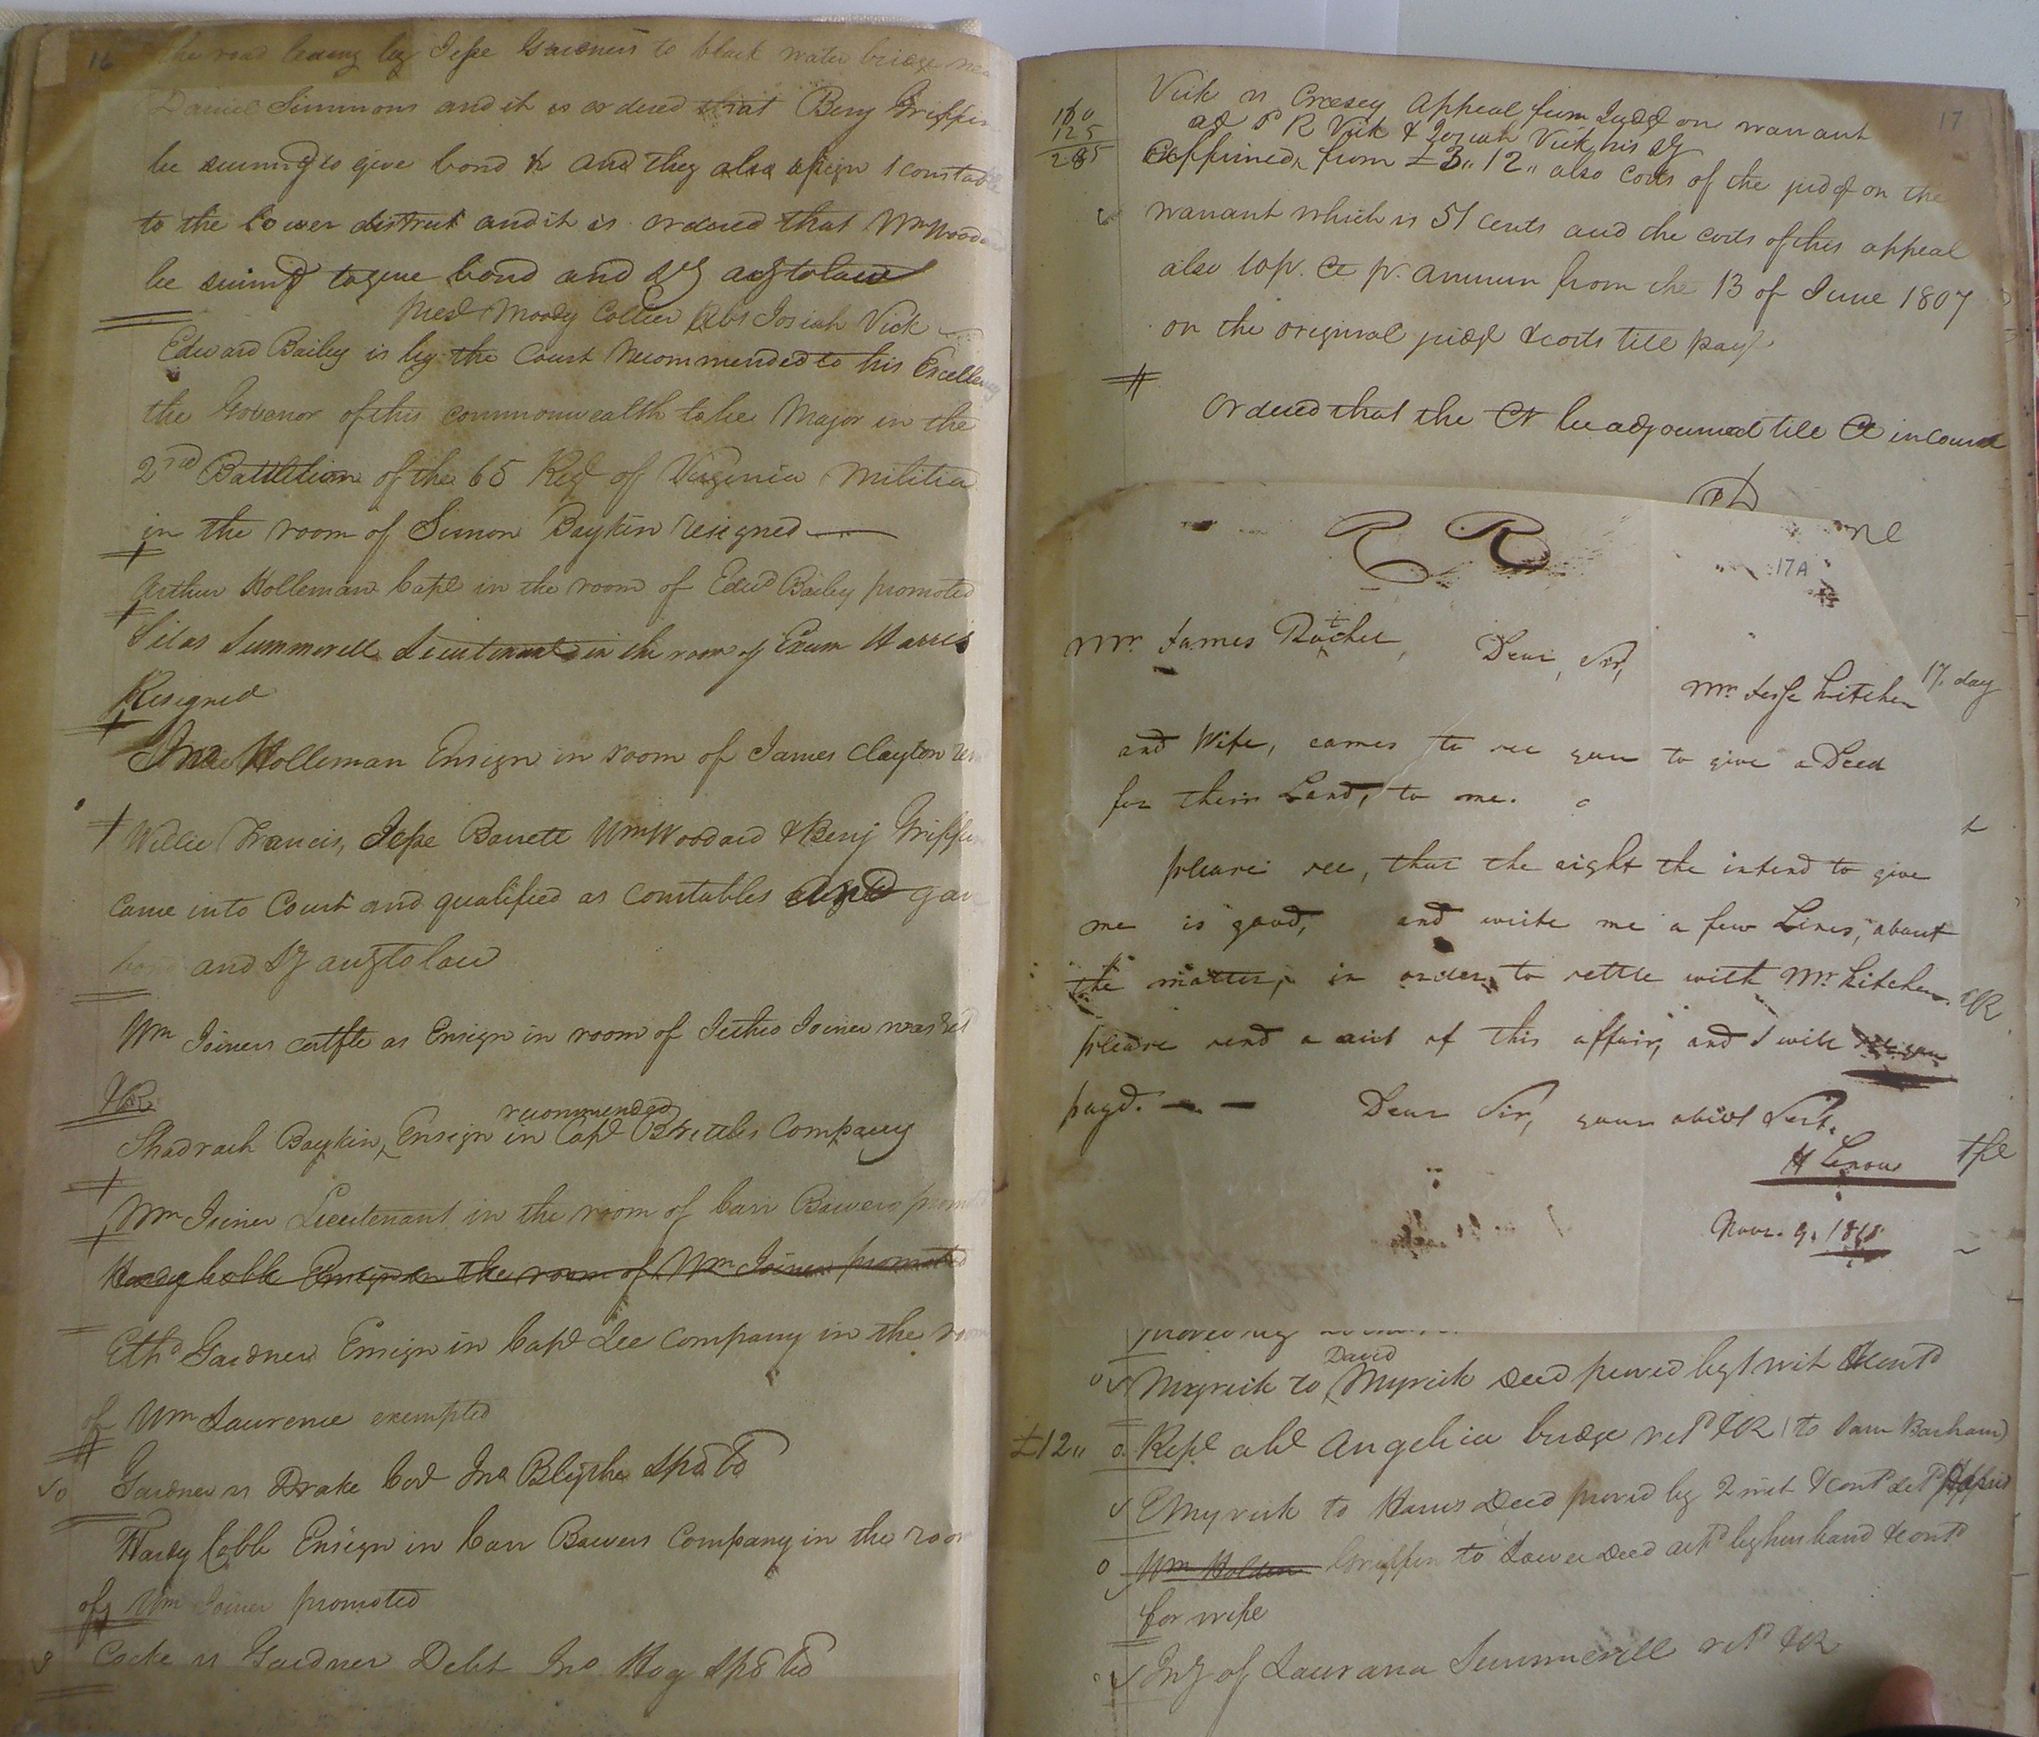 16 the road leading by Jesse Gardners to black water bridge
Daniel Simmons and it is ordered that Benj Griffin
be summd to give bond & and they also assign 1 constable
to the Lower district and it is ordered that Wm Wood
be summd to give bond and Sy acg to law
Presd Moody Collier Abs Josiah Vick
Edward Bailey is by the Court recommended to his Excellency
the Govenor of this commonwealth to be Major in the
2nd Battletion of the 65 Regt of Virginia Militia
in the room of Simon Boykin resigned
Arthur Holleman Capt in the room of Edwd Bailey promoted
Silas Summerell Lieutenant in the room of Exum Harris
Resigned
Jno Holleman Ensign in room of James Clayton
Willie Francis, Jesse Barrett Wm Woodard & Benj Griffin
Came into Court and qualified as constables and gav
bond and Sy acg to law
Wm Joiners certfte as Ensign in room of Jethro Joiner was ret
&R
recommended
Shadrach Boykin, Ensign in Capt Brittles Company
Wm Joiner Lieutenant in the room of Carr Bowers prom
Hardy Cobb Ensign in the room of Wm Joiner promoted
Ethd Gardner Ensign in Capt Lee Company in the room
of Wm Laurence exempted
Gardner vs Drake Cov Jno Blythe spd bd
Hardy Cobb Ensign in Carr Bowers Company in the room
of Wm Joiner promoted
Cocke vs Gardner Debt Jno Hog spd bd
17
Vick vs Creasey Appeal from Judgt on warrant
160
125
285
agt P R Vick & Josiah Vick his Sy
affirmed, from £3,, 12,, also costs of the judgt on the
warrant which is 51 cents and the costs of this appeal
also 10 pr. Ct pr. annum from the 13 of June 1807
on the original judgt & costs till payt
Ordered that the Ct be adjourned till Ct in course
R R
17A
Mr. James Rochel,
Dear, Sir,
Mr. Jesse Kitchen
17. day
and Wife, comes to see you to give a Deed
for their Land, to me.
please see, that the right the intend to give
me is good, and write me a few Lines, about
the matter, in order, to settle with Mr. Kitchen.
&R
please send a act of this affair, and I will
payd. Dear Sir, your obidt Sert.
H Lenow
Novr. 9. 1818
David
Myrick to Myrick Deed proved by 1 wit & contd
£12,, Rept abt Angelica bridge retd &R (to Sam Barham)
Myrick to Harris Deed proved by 2 wit & contd
Wm Holden Griffin to Lawe Deed ackd by husband & contd
for wife
Iny of Laurana Summerell retd &R